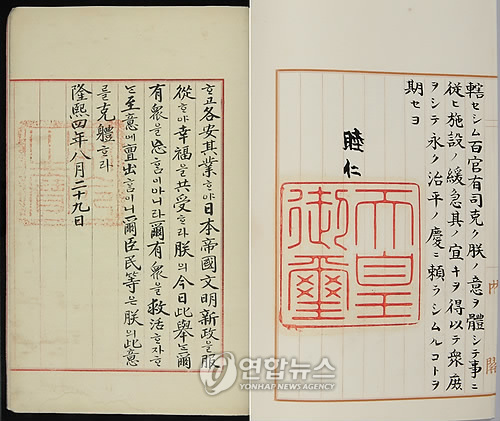 ᄒᆞ고各安其業ᄒᆞ야日本帝國文明新政을服
從ᄒᆞ야幸福을共受ᄒᆞ라朕의今日此擧ᄂᆞᆫ爾
有衆을忘홈이아니라爾有衆을救活ᄒᆞ자ᄒᆞ
ᄂᆞᆫ至意에亶出홈이니爾臣民等은朕의此意
를克體ᄒᆞ라
隆熙四年八月二十九日
轄セシム百官有司克ク朕ノ意ヲ體シテ事ニ
從ヒ施設ノ緩急其ノ宜キヲ得以テ衆庶
ヲシテ永ク治平ノ慶ニ頼ラシムルコトヲ
期セヨ
睦仁
天皇
御璽
内閣
연합뉴스
YONHAP NEWS AGENCY